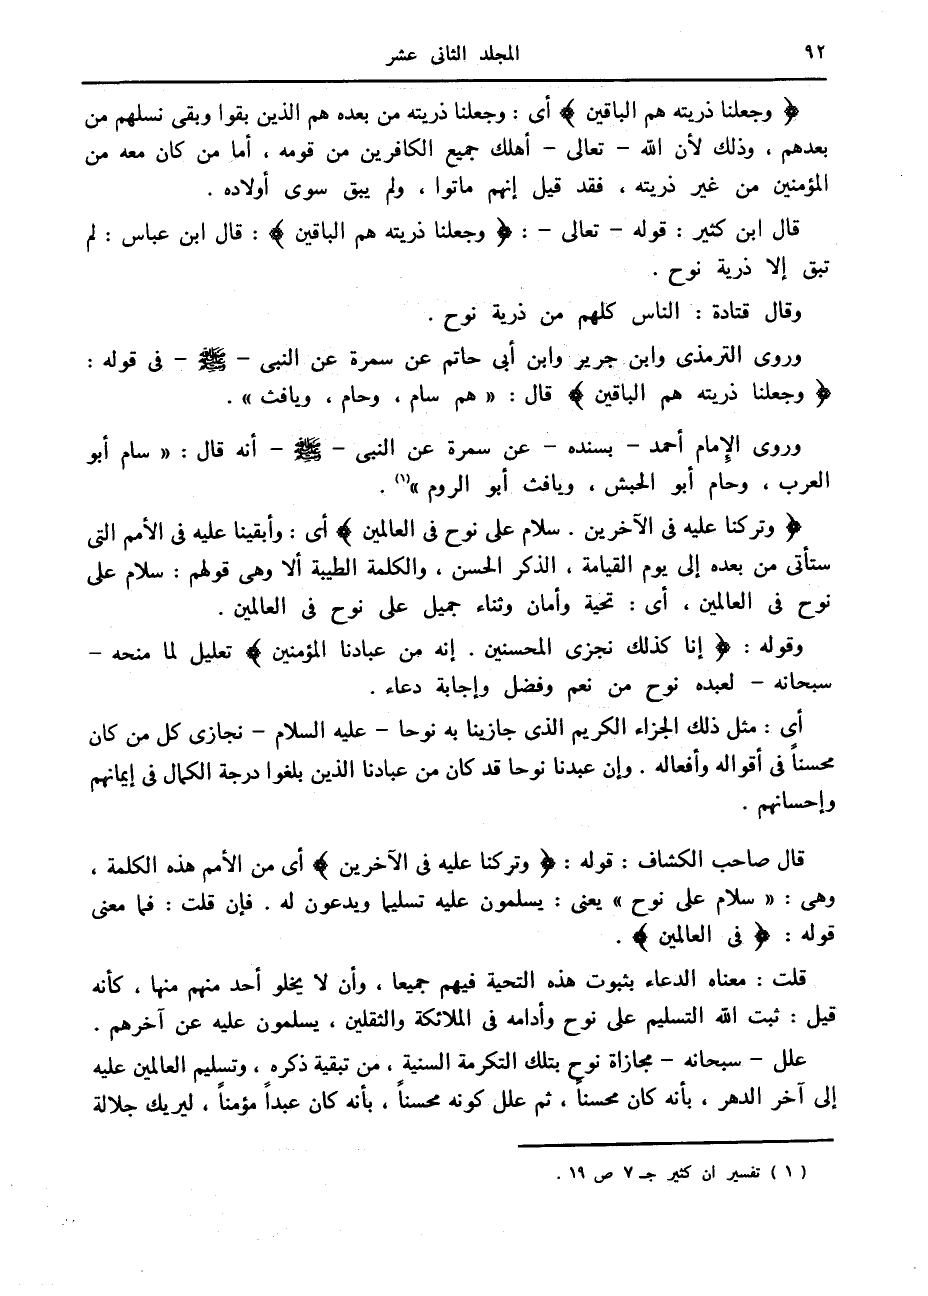 ٩٢
المجلد الثانى عشر
﴿ وجعلنا ذريته هم الباقين ﴾ أى : وجعلنا ذريته من بعده هم الذين بقوا وبقى نسلهم من
بعدهم ، وذلك لأن الله – تعالى – أهلك جميع الكافرين من قومه ، أما من كان معه من
المؤمنين من غير ذريته ، فقد قيل إنهم ماتوا ، ولم يبق سوى أولاده .
قال ابن كثير : قوله – تعالى – : ﴿ وجعلنا ذريته هم الباقين ﴾ : قال ابن عباس : لم
تبق إلا ذرية نوح .
وقال قتادة : الناس كلهم من ذرية نوح .
وروى الترمذى وابن جرير وابن أبى حاتم عن سمرة عن النبى – ﷺ – فى قوله :
﴿ وجعلنا ذريته هم الباقين ﴾ قال : « هم سام ، وحام ، ويافث » .
وروى الإمام أحمد – بسنده – عن سمرة عن النبى – ﷺ – أنه قال : « سام أبو
العرب ، وحام أبو الحبش ، ويافث أبو الروم »(١) .
﴿ وتركنا عليه فى الآخرين . سلام على نوح فى العالمين ﴾ أى : وأبقينا عليه فى الأمم التى
ستأتى من بعده إلى يوم القيامة ، الذكر الحسن ، والكلمة الطيبة ألا وهى قولهم : سلام على
نوح فى العالمين ، أى : تحية وأمان وثناء جميل على نوح فى العالمين .
وقوله : ﴿ إنا كذلك نجزى المحسنين . إنه من عبادنا المؤمنين ﴾ تعليل لما منحه –
سبحانه – لعبده نوح من نعم وفضل وإجابة دعاء .
أى : مثل ذلك الجزاء الكريم الذى جازينا به نوحا – عليه السلام – نجازى كل من كان
محسناً فى أقواله وأفعاله . وإن عبدنا نوحا قد كان من عبادنا الذين بلغوا درجة الكمال فى إيمانهم
وإحسانهم .
قال صاحب الكشاف : قوله : ﴿ وتركنا عليه فى الآخرين ﴾ أى من الأمم هذه الكلمة ،
وهى : « سلام على نوح » يعنى : يسلمون عليه تسليما ويدعون له . فإن قلت : فما معنى
قوله : ﴿ فى العالمين ﴾ .
قلت : معناه الدعاء بثبوت هذه التحية فيهم جميعا ، وأن لا يخلو أحد منهم منها ، كأنه
قيل : ثبت الله التسليم على نوح وأدامه فى الملائكة والثقلين ، يسلمون عليه عن آخرهم .
علل – سبحانه – مجازاة نوح بتلك التكرمة السنية ، من تبقية ذكره ، وتسليم العالمين عليه
إلى آخر الدهر ، بأنه كان محسناً ، ثم علل كونه محسناً ، بأنه كان عبداً مؤمناً ، ليريك جلالة
( ١ ) تفسير ان كثير جـ ٧ ص ١٩ .